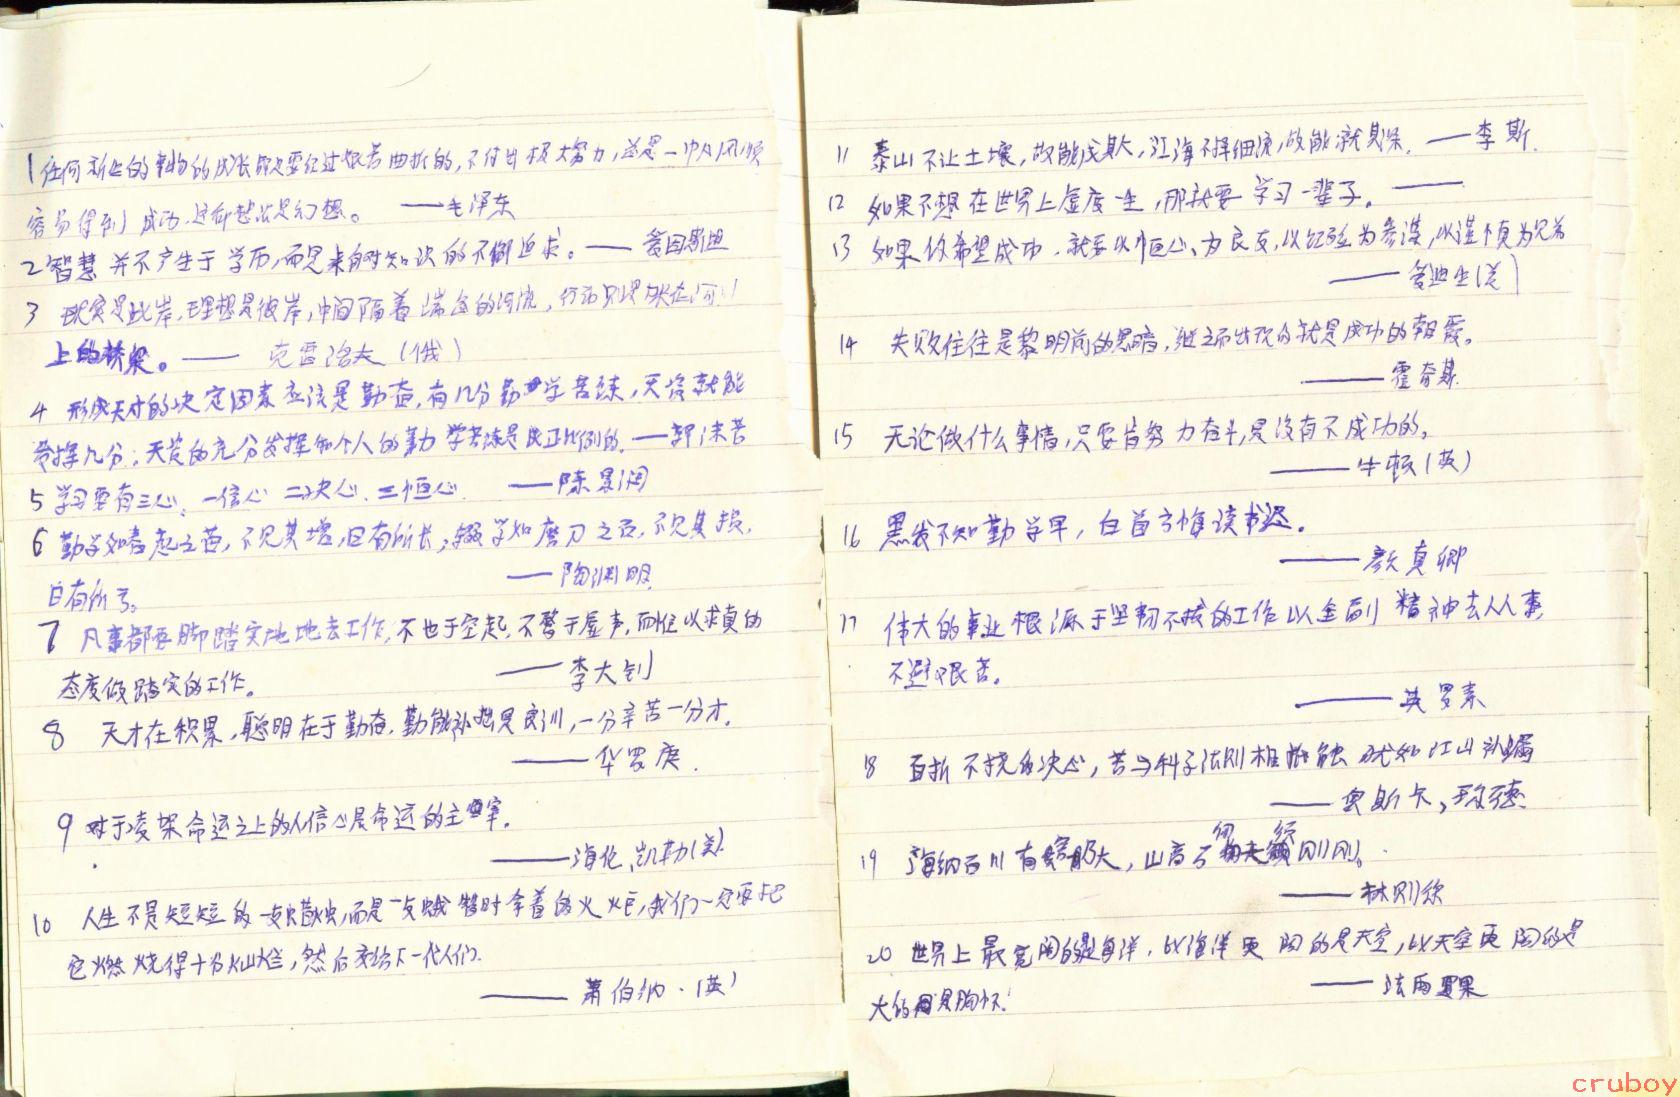 1 任何新生的事物的成长都是要经过艰苦曲折的，不付出极大努力，总是一帆风顺
容易得到成功，这种想法是幻想。 ——毛泽东
2 智慧并不产生于学历，而是来自对知识的不懈追求。—— 爱因斯坦
3 现实是此岸，理想是彼岸，中间隔着湍急的河流，行动则是架在河川
上的桥梁。—— 克雷洛夫（俄）
4 形成天才的决定因素应该是勤奋，有几分勤学苦练，天资就能
发挥几分；天资的充分发挥和个人的勤学苦练是成正比例的。——郭沫若
5 学习要有三心，一信心 二决心、三恒心 ——陈景润
6 勤学如春起之苗，不见其增，日有所长；辍学如磨刀之石，不见其损，
日有所亏。 ——陶渊明
7 凡事都要脚踏实地地去工作，不 于空起，不骛于虚声，而 以求真的
态度做踏实的工作。 ——李大钊
8 天才在积累，聪明在于勤奋，勤能补拙是良训，一分辛苦一分才。
——华罗庚
9 对于凌架命运之上的人信心是命运的主宰。
——海伦、凯勒（美）
10 人生不是短短的一支蜡烛，而是一支 暂时拿着的火炬，我们一定要把
它燃烧得十分 ，然后交给下一代人们。
——萧伯纳．（英）
11 泰山不让土壤，故能成其大，江海不择细流，故能就其深．——李斯．
12 如果不想在世界上虚度一生，那就要学习一辈子。——
13 如果你希望成功，就要以恒心为良友，以经验为参谋，以谨慎为兄弟
——爱迪生（美）
14 失败往往是黎明前的黑暗，继之而出现的就是成功的朝霞。
——霍奇斯
15 无论做什么事情，只要肯努力奋斗，是没有不成功的。
——牛顿（英）
16 黑发不知勤学早，白首方悔读书迟。
——颜真卿
17 伟大的事业根源于坚韧不拔的工作 以全副精神去 事，
不避艰苦。
——英 罗素
18 百折不挠的决心，若与科学法则相抵触 犹如江山
——奥斯卡，
19 海纳百川 有容乃大，山高 刚。
——林则徐
20 世界上最宽阔的是海洋，比海洋更阔的是天空，比天空更阔的是
大的 是胸怀！ ——法雨果
cruboy